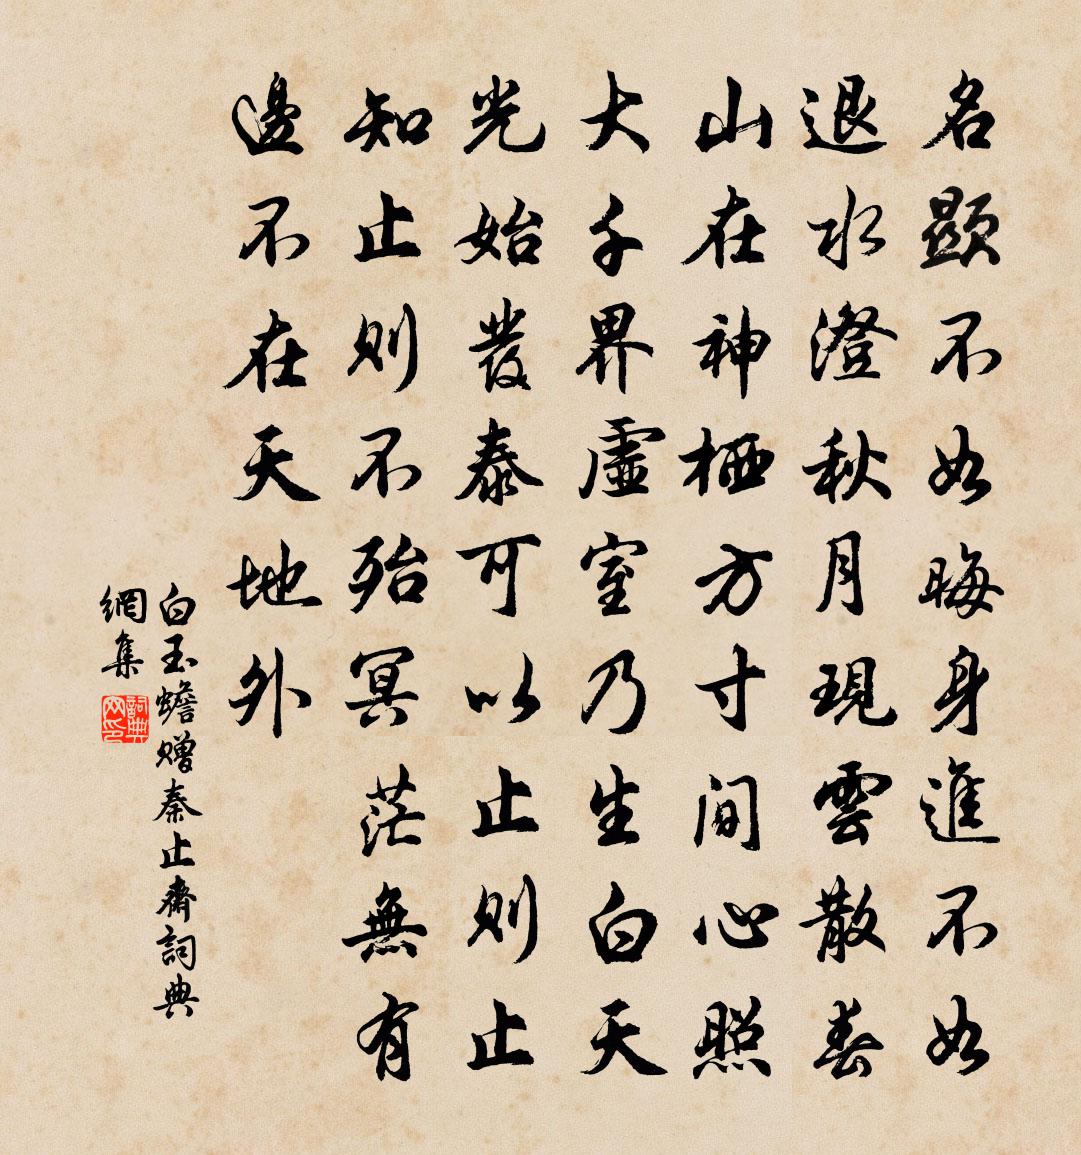 名顯不如晦身進不如
退水澄秋月現雲散春
山在神栖方寸間心照
大千界虛室乃生白天
光始發泰可以止則止
知止則不殆冥茫無有
邊不在天地外
白玉蟾赠秦止齋詞典
網集
詞典
网印